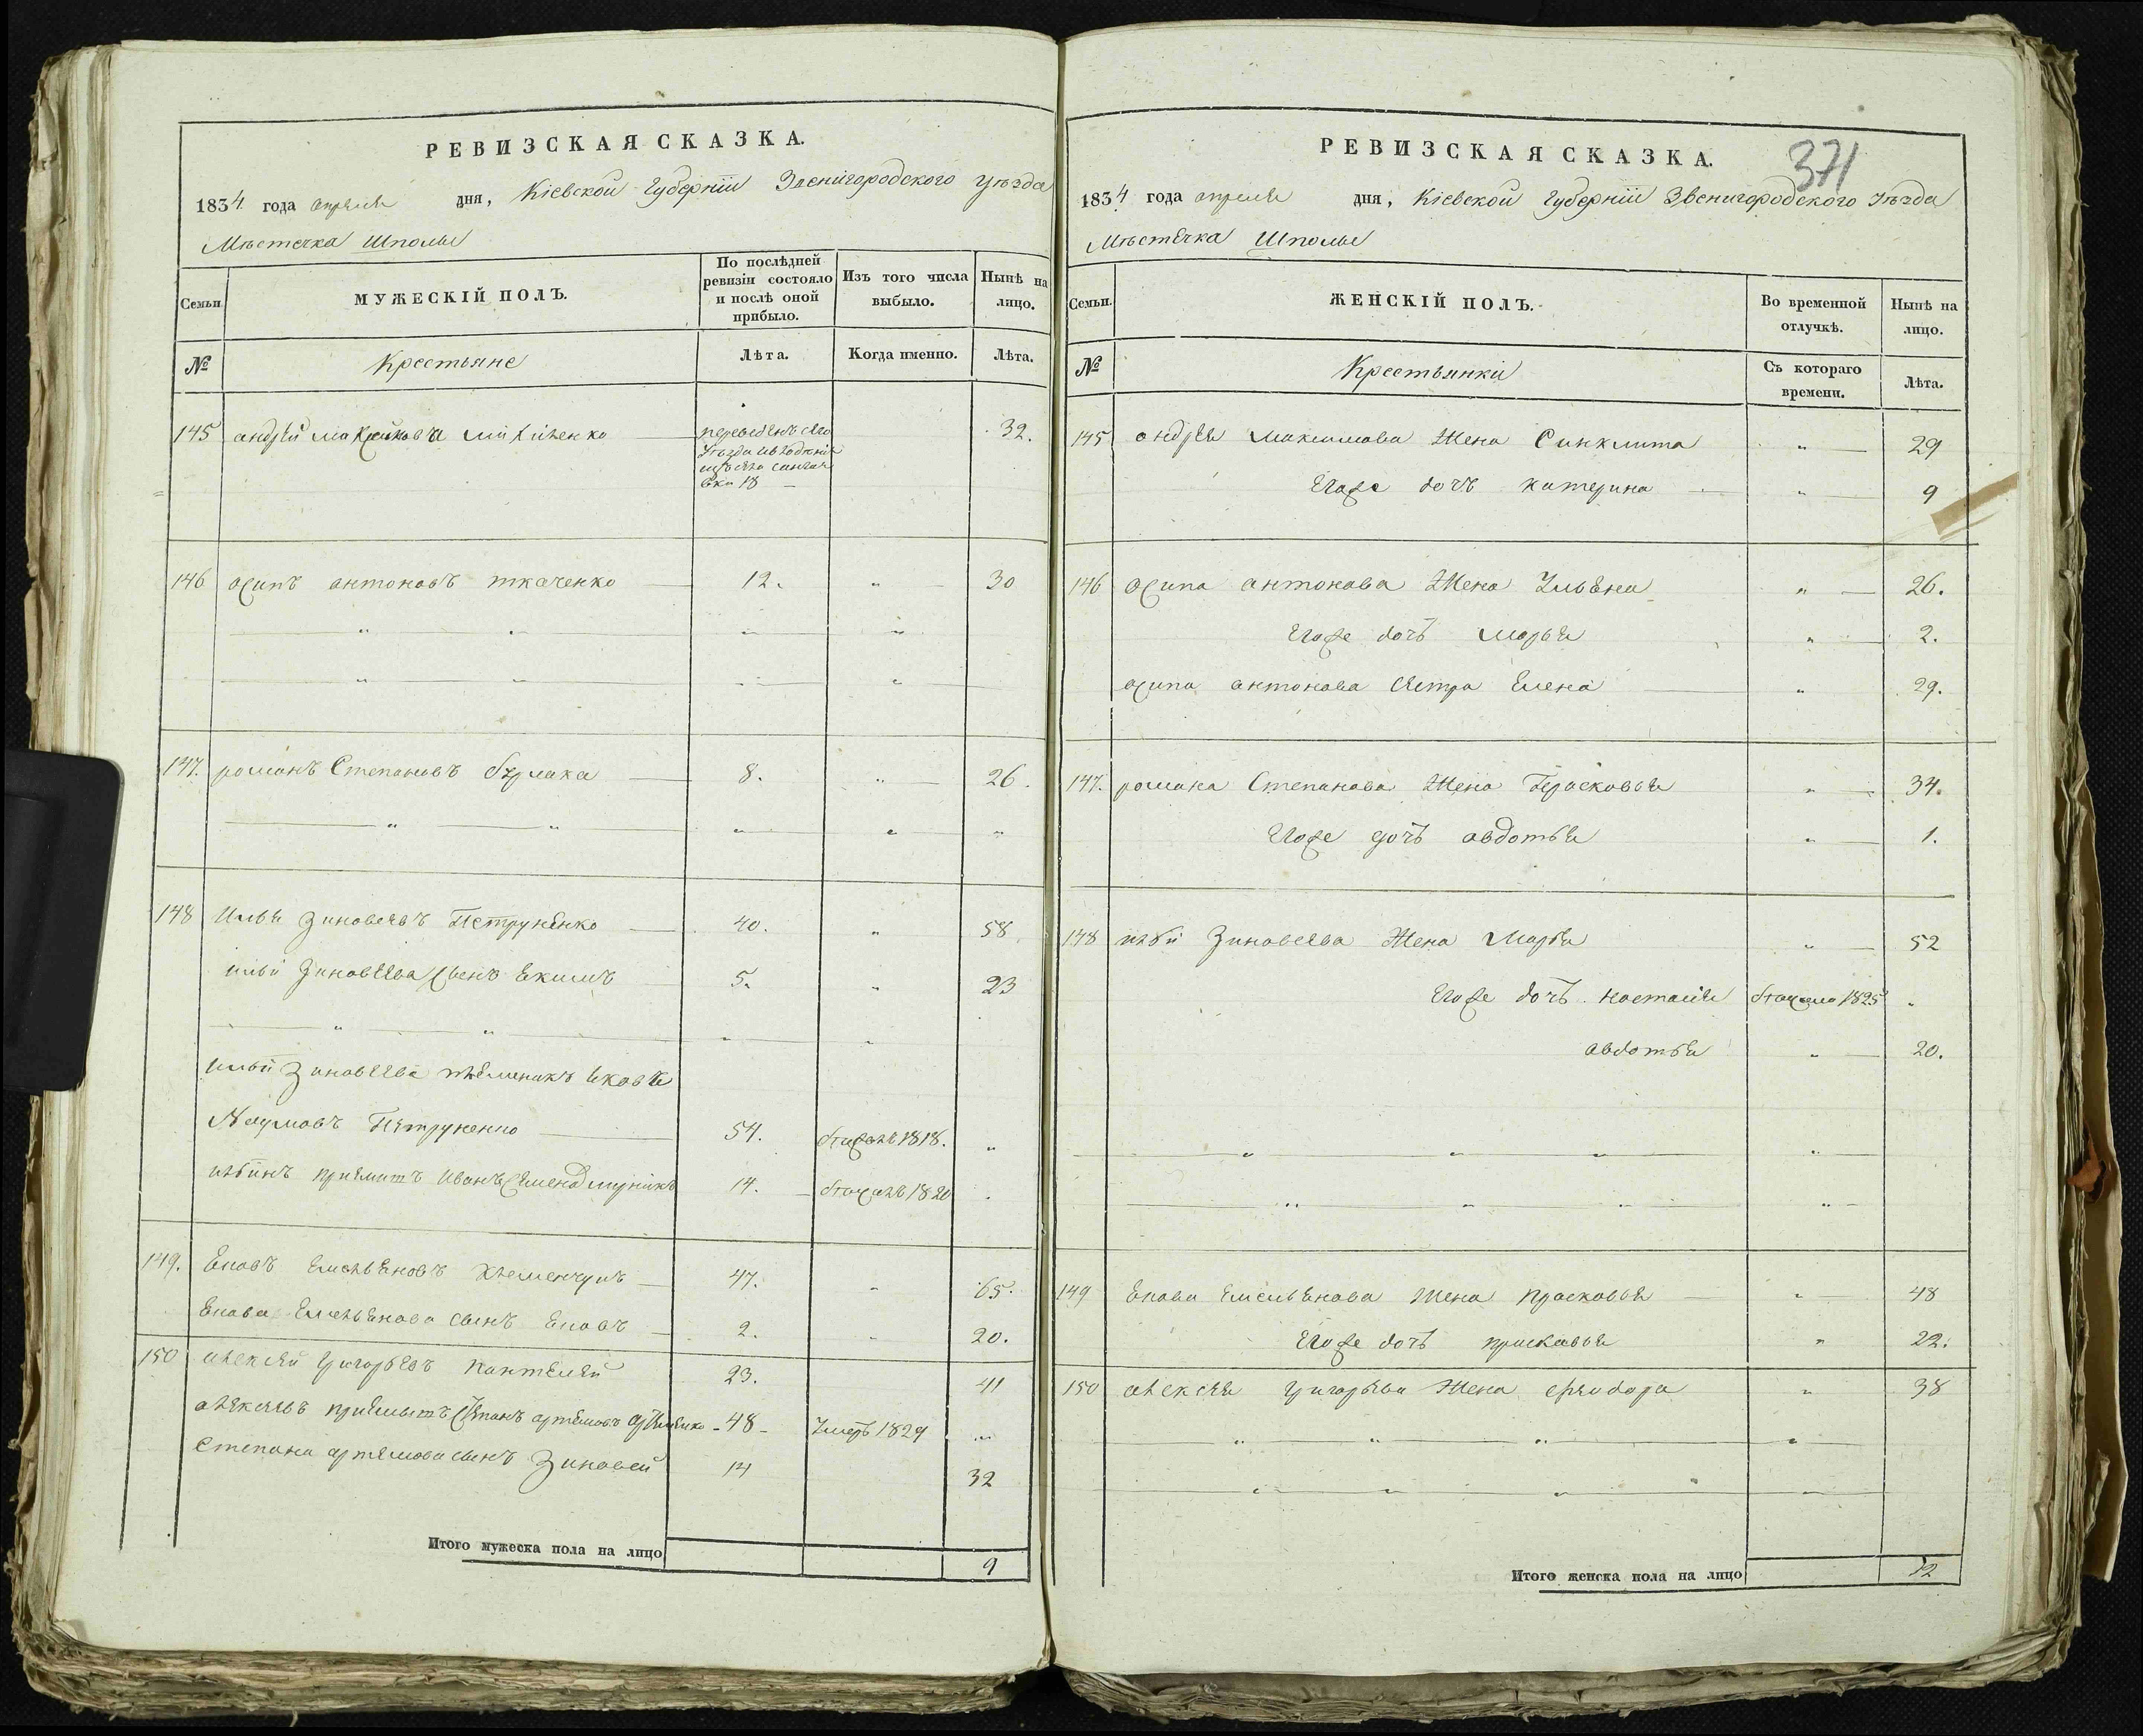 РЕВИЗСКАЯ СКАЗКА.
1834 года апреля дня, Кіевской Губерніи Звенигородского Уѣзда
Мѣстечка Шполы
Семьи.
МУЖЕСКІЙ ПОЛЪ.
По послѣдней ревизіи состояло и послѣ оной прибыло.
Изъ того числа выбыло.
Нынѣ на лицо.
№
Крестьяне
Лѣта.
Когда именно.
Лѣта.
145 андрей 32.
18
146 осипъ антоновъ ткаченко 12. " 30
147. романъ Степановъ бурлака 8. " 26.
148 Илья Зиновеевъ Петруненко 40. " 58
ильи Зиновеева сынъ Екимъ 5. " 23
ильи Зиновеева племеникъ
Наумовъ Петруненко 54. 1818. "
приемитъ Иванъ 14. 1820
149. Еловъ Емельяновъ 47. " 65.
Емельянова сынъ 2. " 20.
150 алексей григорьевъ пантелей 23. 41
алексеевъ Степанъ артемовъ 48 Умеръ 1829 "
Степана артемова сынъ Зиновей 14 32
Итого мужеска пола на лицо 9
РЕВИЗСКАЯ СКАЗКА.
371
1834 года апреля дня, Кіевской Губерніи Звенигородского Уѣзда
Мѣстечка Шполы
Семьи.
ЖЕНСКІЙ ПОЛЪ.
Во временной отлучкѣ.
Нынѣ на лицо.
№
Крестьянки
Съ котораго времени.
Лѣта.
145 андрея максимова Жена Синклита " 29
Егоже дочъ катерина " 9
146 осипа антонова Жена Ульяна " 26.
Егоже дочъ марья " 2.
осипа антонова сестра Елена " 29.
147. романа Степанова Жена Прасковья " 34.
Егоже дочъ авдотья " 1.
148 ильи Зиновеева Жена Марья " 52
Егоже дочъ настасия 1825 "
авдотья " 20.
149 Емельянова Жена прасковья " 48
Егоже дочъ прасковья " 22.
150 алексея григорьева Жена феодора " 38
Итого женска пола на лицо 12